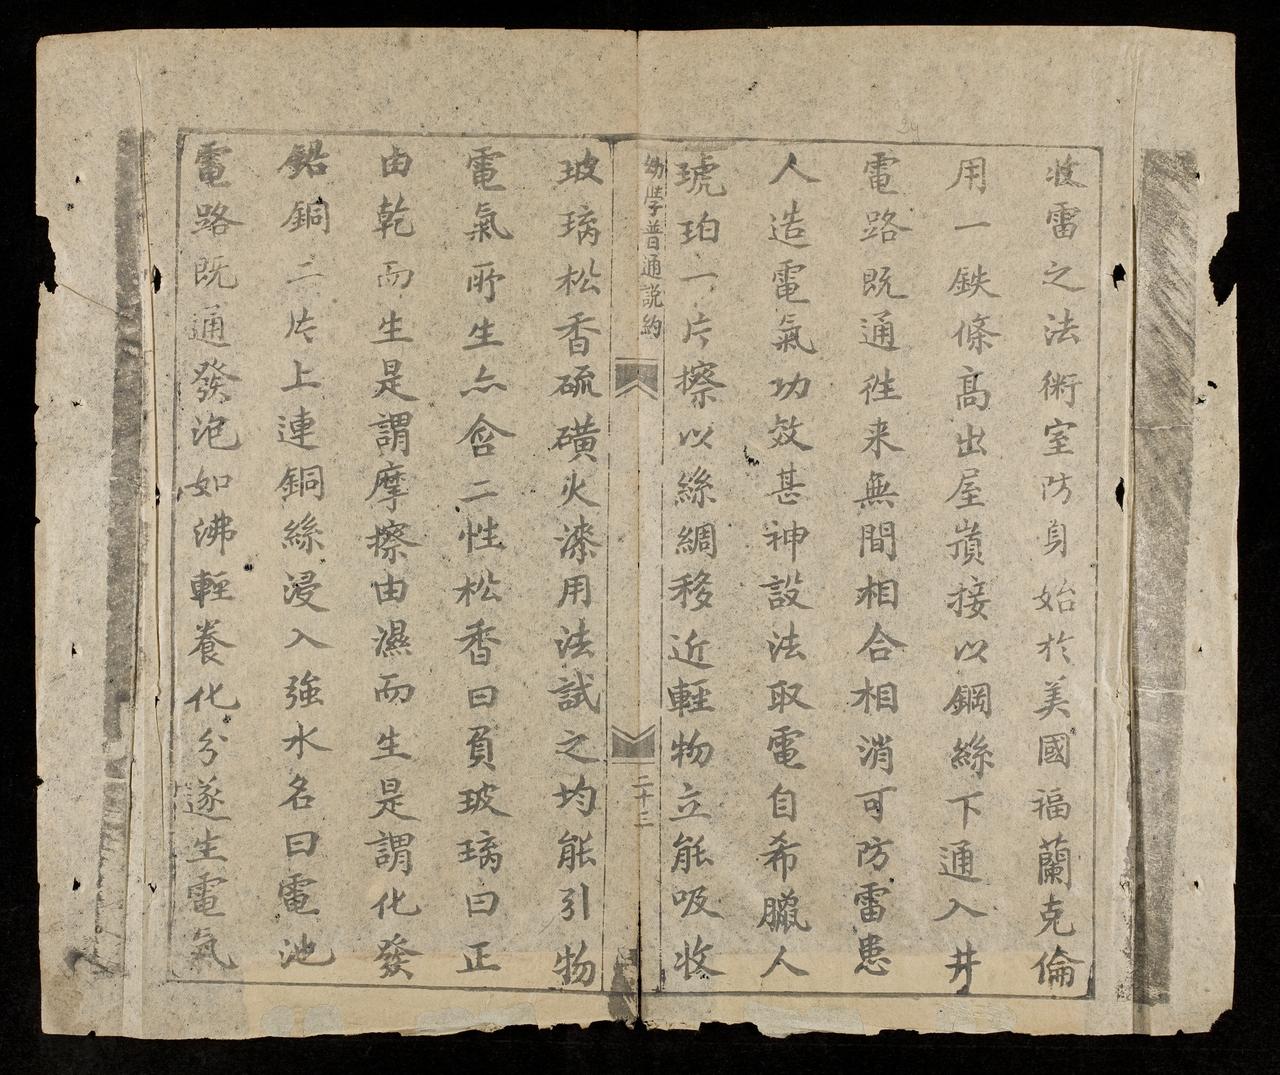 收雷之法術室防身始於美國福蘭克倫
用一鉄條高出屋嵿接以鋼絲下通入井
電路既通徃来無間相合相消可防雷患
人造電氣功效甚神設法取電自希臘人
琥珀一片擦以絲綢移近輊物立能吸收
幼學普通説約
二十三
玻璃松香硫磺火漆用法試之均能引物
電氣所生亦含二性松香曰負玻璃曰正
由乾而生是謂摩擦由濕而生是謂化發
鉛銅二片上連銅絲浸入強水名曰電池
電路既通發泡如沸輊養化分遂生電氣